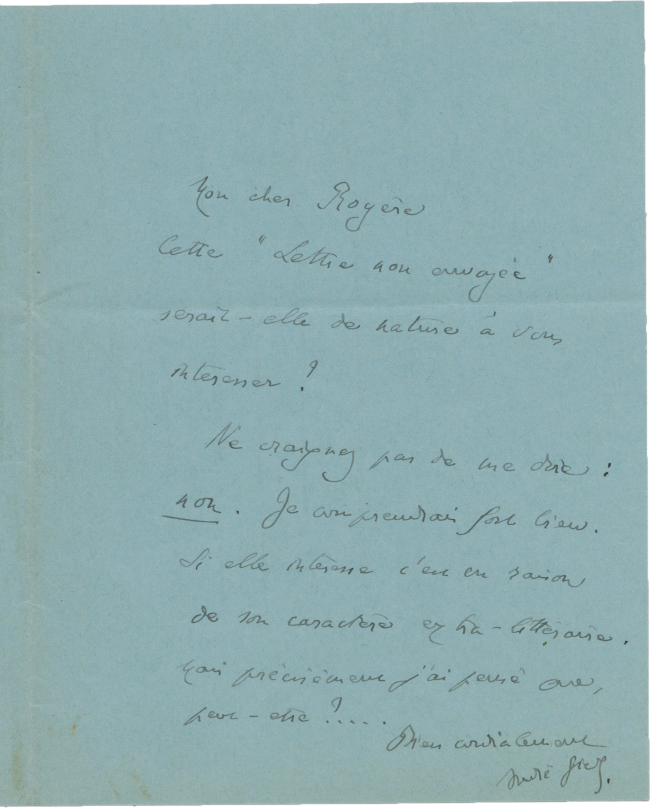 Mon cher Rogère
Cette "Lettre non envoyée"
serait-elle de nature à vous
intéresser ?
Ne craignez pas de me dire :
non. Je comprendrais fort bien.
Si elle intéresse c'est en raison
de son caractère extra-littéraire.
Mais précisément j'ai pensé que,
peut-être ?.....
Bien cordialement
André